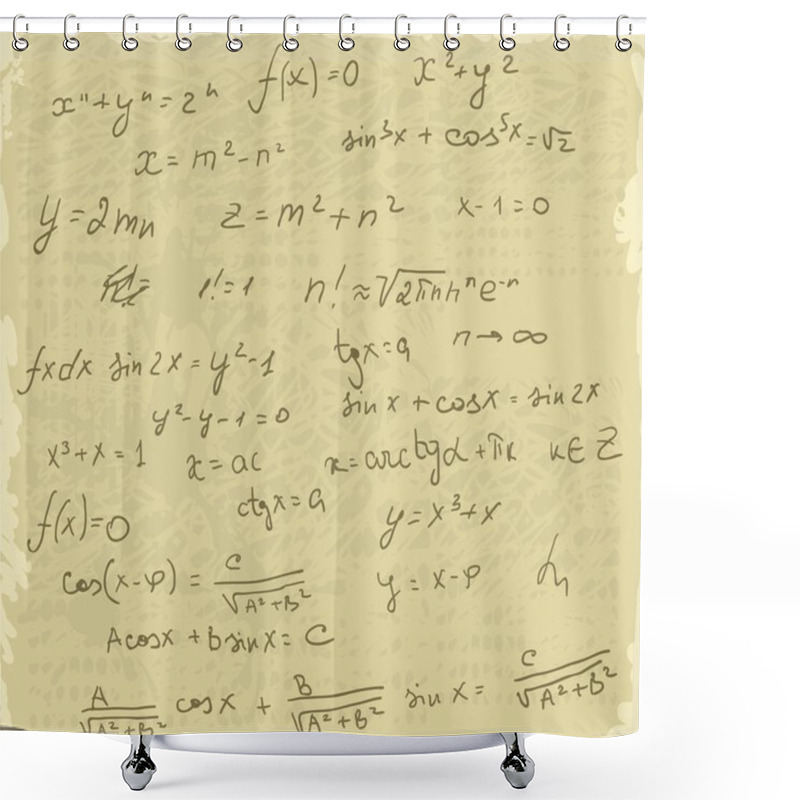 xⁿ + yⁿ = 2ⁿ f(x) = 0 x² + y²
x = m² - n² sin³x + cos⁵x = √2
y = 2mn z = m² + n² x - 1 = 0
1! = 1 n! ≈ √2πn nⁿ e⁻ⁿ
fxdx sin2x = y² - 1 tgx = a n → ∞
y² - y - 1 = 0 sinx + cosx = sin2x
x³ + x = 1 x = ac x = arctgα + πk k ∈ Z
f(x) = 0 ctgx = a y = x³ + x
cos(x - φ) = C / √A² + B² y = x - φ
Acosx + Bsinx = C
A / √A² + B² cosx + B / √A² + B² sinx = C / √A² + B²